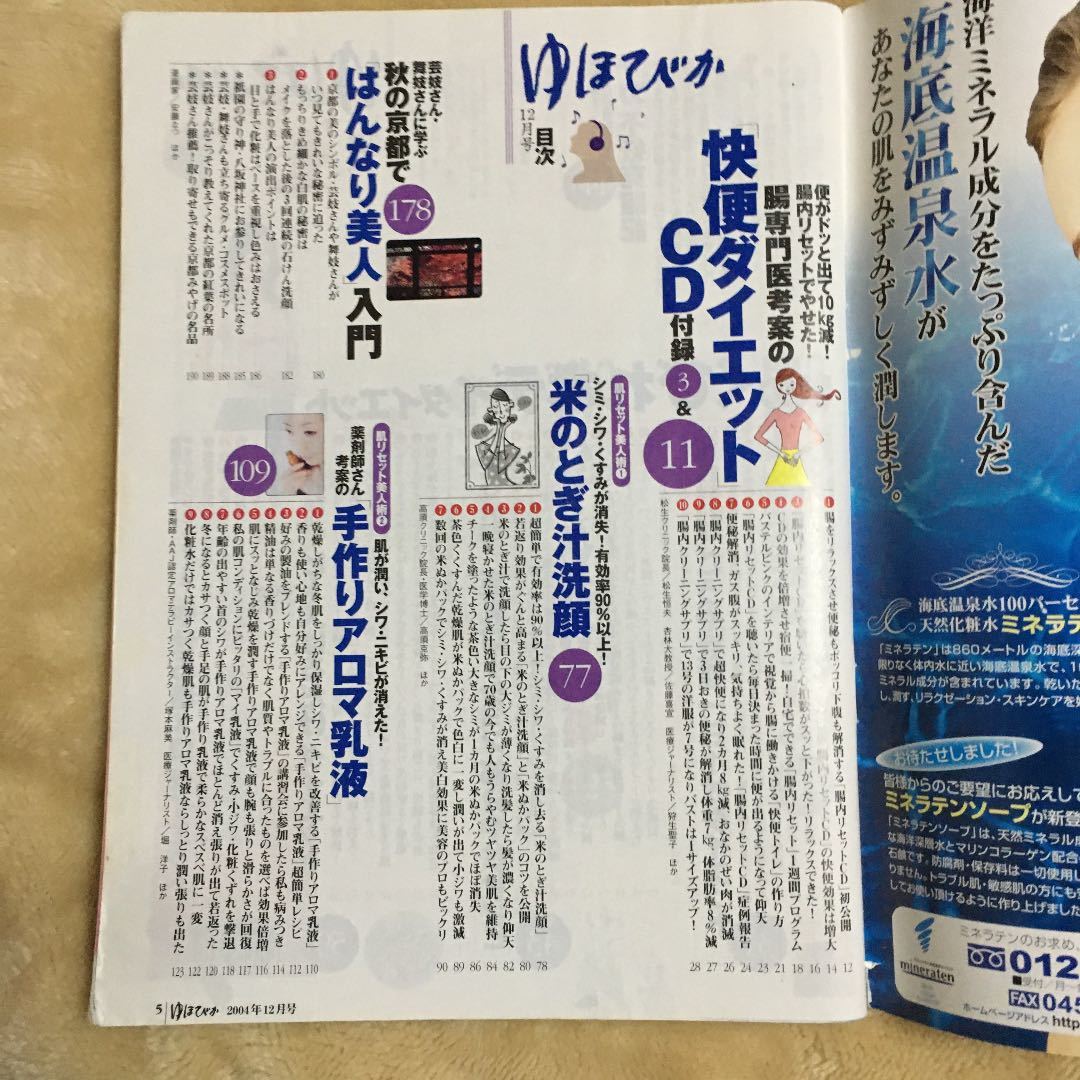 ゆほびか
12月号
目次
便がドッと出て10kg減!
腸内リセットでやせた!
腸専門医考案の
「快便ダイエット」
CD付録
3
&
11
❶腸をリラックスさせ便秘もポッコリ下腹も解消する「腸内リセットCD」初公開 12
CDの効果を倍増させ宿便一掃!自宅でできる「腸内リセット」1週間プログラム 18
パステルピンクのインテリアで視覚から腸に働きかける「快便トイレ」の作り方 21
❻「腸内リセットCD」を聴いたら毎日決まった時間に便が出るようになって仰天 23
❼便秘解消、ガス腹がスッキリ、気持ちよく眠れた!「腸内リセットCD」症例報告 24
❽「腸内クリーニングサプリ」で超快便になり2カ月8kg減、おなかのぜい肉が消滅 26
❾「腸内クリーニングサプリ」で3日おきの便秘が解消し体重7kg、体脂肪率8%減 27
❿「腸内クリーニングサプリ」で13号の洋服が7号になりバストは1サイズアップ! 28
松生クリニック院長/松生恒夫 杏林大教授/佐藤喜宣 医療ジャーナリスト/狩生聖子 ほか
肌リセット美人術❶
シミ・シワ・くすみが消失!有効率90%以上!
「米のとぎ汁洗顔」
77
❶超簡単で有効率は90%以上!シミ・シワ・くすみを消し去る「米のとぎ汁洗顔」 78
❷若返り効果がぐんと高まる「米のとぎ汁洗顔」と「米ぬかパック」のコツを公開 80
❸米のとぎ汁で洗顔したら目の下の大ジミが薄くなり洗髪したら髪が濃くなり仰天 82
❹一晩寝かせた米のとぎ汁洗顔で70歳の今でも人もうらやむツヤツヤ美肌を維持 84
❺チークを塗ったような茶色い大きなシミが1カ月の米ぬかパックでほぼ消失 86
❻茶色くくすんだ乾燥肌が米ぬかパックで色白に一変し潤いが出て小ジワも激減 89
❼数回の米ぬかパックでシミ・シワ・くすみが消え美白効果に美容のプロもビックリ 90
高須クリニック院長・医学博士/高須克弥 ほか
芸妓さん・舞妓さんに学ぶ
秋の京都で
「はんなり美人」入門
178
❶京都の美のシンボル・芸妓さんや舞妓さんが
いつ見てもきれいな秘密に迫った 180
❷もっちりきめ細かな白肌の秘密は
メイクを落とした後の3回連続の石けん洗顔 182
❸はんなり美人の演出ポイントは
目と手で化粧はベースを重視し色みはおさえる 186
*祇園の守り神・八坂神社にお参りしてきれいになる 185
*芸妓・舞妓さんも立ち寄るグルメ・コスメスポット 188
*芸妓さんがこっそり教えてくれた京都の紅葉の名所 189
*芸妓さん推薦!取り寄せもできる京都みやげの名品 190
肌リセット美人術❷
肌が潤い、シワ・ニキビが消えた!
薬剤師さん考案の
「手作りアロマ乳液」
109
❶乾燥しがちな冬肌をしっかり保湿しシワ・ニキビを改善する「手作りアロマ乳液」 110
❷香りも使い心地も自分好みにアレンジできる「手作りアロマ乳液」超簡単レシピ 112
❸好みの製油をブレンドする「手作りアロマ乳液」の講習会に参加したら私も病みつき 114
❹精油は単なる香りづけだけでなく肌質やトラブルに合ったものを選べば効果倍増 116
❺肌にスッとなじみ乾燥を潤す手作りアロマ乳液で顔も腕も張りと滑らかさが回復 117
❻私の肌コンディションにピッタリの「マイ乳液」でくすみ・小ジワ・化粧くずれを撃退 118
❼年齢の出やすい首のシワが手作りアロマ乳液でほとんど消え張りが出て若返った 120
❽冬になるとカサつく顔と手足の肌が手作りアロマ乳液で柔らかなスベスベ肌に一変 122
❾化粧水だけではカサつく乾燥肌も手作りアロマ乳液ならしっとり潤い張りも出た 123
薬剤師・AAJ認定アロマテラピーインストラクター/塚本麻美、医療ジャーナリスト/堀 洋子 ほか
5 ゆほびか 2004年12月号
海洋ミネラル成分をたっぷり含んだ
海底温泉水が
あなたの肌をみずみずしく潤します。
海底温泉水100パーセ
天然化粧水 ミネラテ
「ミネラテン」は860メートルの海底深
限りなく体内水に近い海底温泉水で、1
ミネラル成分が含まれています。乾いた
し、潤す、リラクゼーション・スキンケアを
お待たせしました!
皆様からのご要望にお応えして
ミネラテンソープが新登
「ミネラテンソープ」は、天然ミネラル成
な海洋深層水とマリンコラーゲン配合
石鹸です。防腐剤・保存料は一切使用し
りません。トラブル肌・敏感肌の方にも
してお使い頂けるように作り上げました
ミネラテンのお求め、
mineraten
012
■受付/月〜
FAX 045
ホームページアドレス http